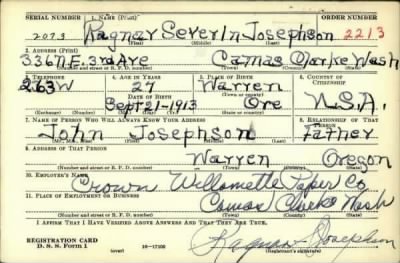 SERIAL NUMBER 1. NAME (Print) ORDER NUMBER
2073 Ragnar Severin Josephson 2213
(First) (Middle) (Last)
2. ADDRESS (Print)
336 N.E. 3rd Ave Camas Clarke Wash
(Number and street or R. F. D. number) (Town) (County) (State)
3. TELEPHONE 4. AGE IN YEARS 5. PLACE OF BIRTH 6. COUNTRY OF CITIZENSHIP
263W 27 Warren
DATE OF BIRTH (Town or county)
Sept 21-1913 Ore U.S.A.
(Exchange) (No.) (Mo.) (Day) (Yr.) (State or country)
7. NAME OF PERSON WHO WILL ALWAYS KNOW YOUR ADDRESS 8. RELATIONSHIP OF THAT PERSON
John Josephson Father
(Mr., Mrs., Miss) (First) (Middle) (Last)
9. ADDRESS OF THAT PERSON
Warren Oregon
(Number and street or R. F. D. number) (Town) (County) (State)
10. EMPLOYER'S NAME
Crown Willamette Paper Co
11. PLACE OF EMPLOYMENT OR BUSINESS
Camas Clarke Wash
(Number and street or R. F. D. number) (Town) (County) (State)
I AFFIRM THAT I HAVE VERIFIED ABOVE ANSWERS AND THAT THEY ARE TRUE.
REGISTRATION CARD
D. S. S. Form 1 (over) 16-17105 Ragnar Josephson